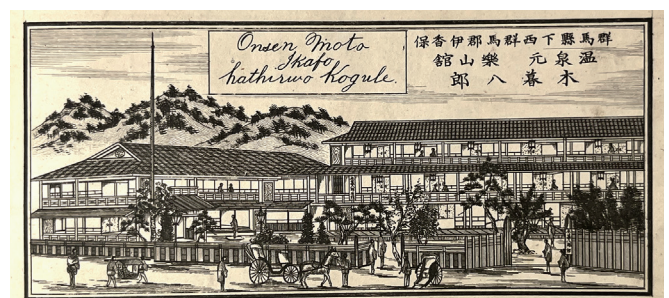 Onsen Moto
Ikafo
hathirwo Kogule.
群馬縣下西群馬郡伊香保
温泉元樂山舘
木暮八郎